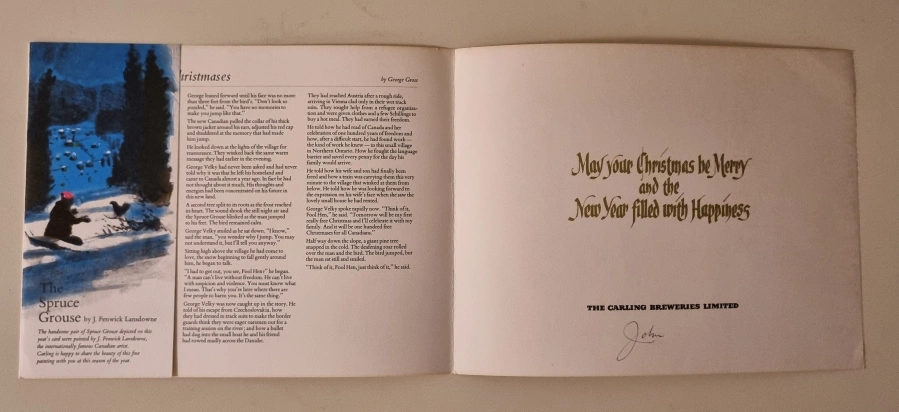 The
Spruce
Grouse by J. Fenwick Lansdowne
The handsome pair of Spruce Grouse depicted on this
year's card were painted by J. Fenwick Lansdowne,
the internationally famous Canadian artist.
Carling is happy to share the beauty of this fine
painting with you at this season of the year.
hristmases
by George Gross
George leaned forward until his face was no more
than three feet from the bird's. "Don't look so
puzzled," he said. "You have no memories to
make you jump like that."
The new Canadian pulled the collar of his thick
brown jacket around his ears, adjusted his red cap
and shuddered at the memory that had made
him jump.
He looked down at the lights of the village for
reassurance. They winked back the same warm
message they had earlier in the evening.
George Velky had never been asked and had never
told why it was that he left his homeland and
came to Canada almost a year ago. In fact he had
not thought about it much. His thoughts and
energies had been concentrated on his future in
this new land.
A second tree split to its roots as the frost reached
its heart. The sound shook the still night air and
the Spruce Grouse blinked as the man jumped
to his feet. The bird remained calm.
George Velky smiled as he sat down. "I know,"
said the man, "you wonder why I jump. You may
not understand it, but I'll tell you anyway."
Sitting high above the village he had come to
love, the snow beginning to fall gently around
him, he began to talk.
"I had to get out, you see, Fool Hen" he began.
"A man can't live without freedom. He can't live
with suspicion and violence. You must know what
I mean. That's why you're here where there are
few people to harm you. It's the same thing."
George Velky was now caught up in the story. He
told of his escape from Czechoslovakia, how
they had dressed in track suits to make the border
guards think they were eager oarsmen out for a
training session on the river; and how a bullet
had dug into the small boat he and his friend
had rowed madly across the Danube.
They had reached Austria after a rough ride,
arriving in Vienna clad only in their wet track
suits. They sought help from a refugee organiza-
tion and were given clothes and a few Schillings to
buy a hot meal. They had earned their freedom.
He told how he had read of Canada and her
celebration of one hundred years of freedom and
how, after a difficult start, he had found work —
the kind of work he knew — in this small village
in Northern Ontario. How he fought the language
barrier and saved every penny for the day his
family would arrive.
He told how his wife and son had finally been
freed and how a train was carrying them this very
minute to the village that winked at them from
below. He told how he was looking forward to
the expression on his wife's face when she saw the
lovely small house he had rented.
George Velky spoke rapidly now. "Think of it,
Fool Hen," he said. "Tomorrow will be my first
really free Christmas and I'll celebrate it with my
family. And it will be one hundred free
Christmases for all Canadians."
Half way down the slope, a giant pine tree
snapped in the cold. The deafening roar rolled
over the man and the bird. The bird jumped, but
the man sat still and smiled.
"Think of it, Fool Hen, just think of it," he said.
May your Christmas be Merry
and the
New Year filled with Happiness
THE CARLING BREWERIES LIMITED
John